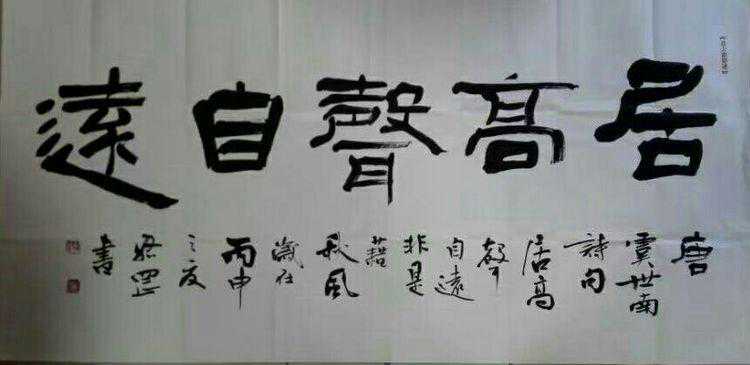 居高聲自遠
唐
虞世南
詩句
居高
聲
自遠
非是
藉
秋風
歲在
丙申
之夏
書